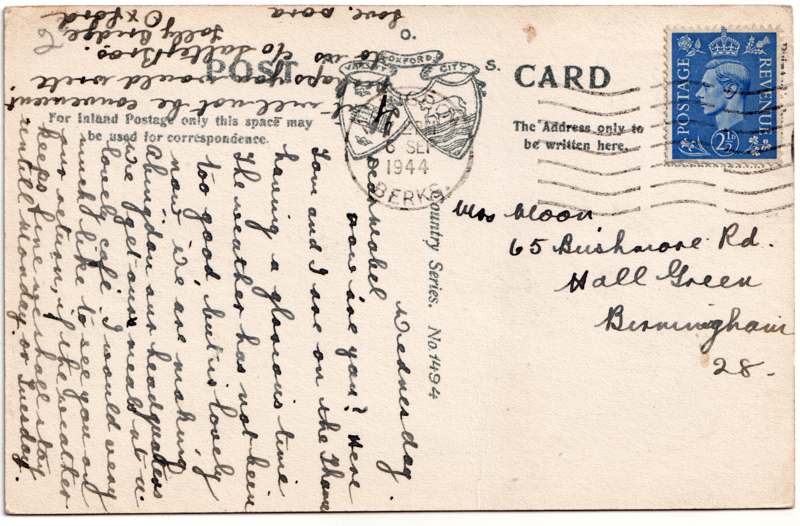 POST CARD
For Inland Postage only this space may
be used for correspondence.
The Address only to
be written here.
O.
S.
OXFORD
CITY
6 SEP
1944
BERKS
Country Series. No 1494
POSTAGE
REVENUE
2½D
Mrs Moon
65 Bushmore Rd.
Hall Green
Birmingham
28.
Wednesday.
Dear Mabel
How are you? Here
Tom and I are on the Thames
having a glorious time
The weather has not been
too good, but is lovely
now. We are making
Abingdon our headquaters
we get our meals at a
lovely café. I would very
much like to see you on
our return, if the weather
keeps fine we shall stay
until Monday or Tuesday.
will not be convenient
perhaps you would write
to us c/o Salter Bros.
Folly Bridge,
Oxford
Love, Dora